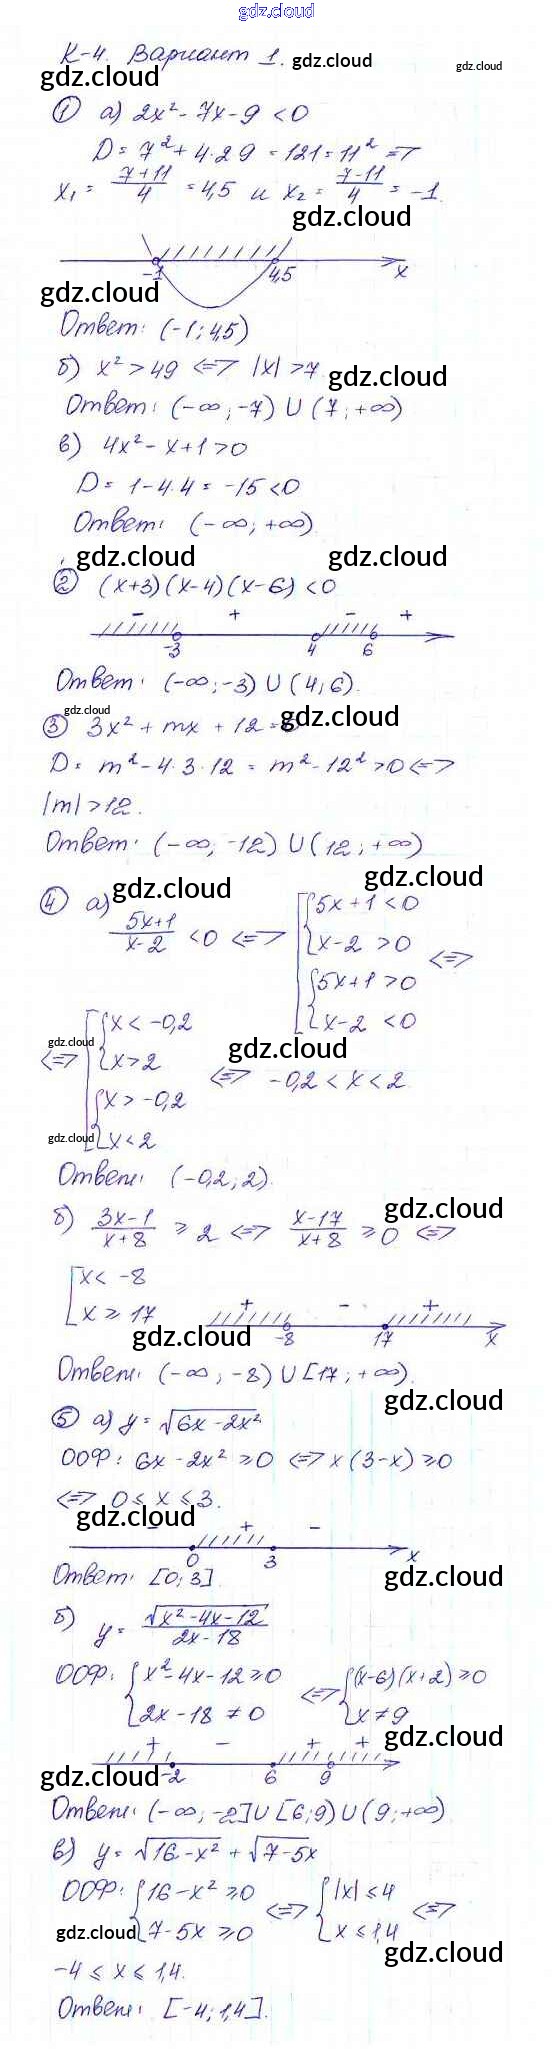 gdz.cloud
К-4. Вариант 1.
gdz.cloud gdz.cloud gdz.cloud
① а) 2x² - 7x - 9 < 0
D = 7² + 4·2·9 = 121 = 11² =>
x₁ = (7+11)/4 = 4,5 и x₂ = (7-11)/4 = -1.
gdz.cloud
-1 4,5 x
gdz.cloud
Ответ: (-1; 4,5)
б) x² > 49 <=> |x| > 7
gdz.cloud
Ответ: (-∞; -7) U (7; +∞)
в) 4x² - x + 1 > 0
D = 1 - 4·4 = -15 < 0
Ответ: (-∞; +∞)
gdz.cloud gdz.cloud
② (x+3)(x-4)(x-6) < 0
- + - +
-3 4 6
Ответ: (-∞; -3) U (4; 6).
gdz.cloud gdz.cloud
③ 3x² + mx + 12 = 0
D = m² - 4·3·12 = m² - 12² > 0 <=>
|m| > 12.
Ответ: (-∞; -12) U (12; +∞)
gdz.cloud gdz.cloud
④ а) (5x+1)/(x-2) < 0 <=> [ { 5x+1 < 0
x-2 > 0
{ 5x+1 > 0
x-2 < 0 <=>
gdz.cloud gdz.cloud
<=> [ { x < -0,2
x > 2
{ x > -0,2
x < 2
<=> -0,2 < x < 2.
gdz.cloud
Ответ: (-0,2; 2).
б) (3x-1)/(x+8) ≥ 2 <=> (x-17)/(x+8) ≥ 0 <=>
gdz.cloud
[ x < -8
x ≥ 17
+ - +
-8 17 x
gdz.cloud
Ответ: (-∞; -8) U [17; +∞).
gdz.cloud
⑤ а) y = √(6x - 2x²)
ООФ: 6x - 2x² ≥ 0 <=> x(3-x) ≥ 0
<=> 0 ≤ x ≤ 3.
gdz.cloud
- + -
0 3 x
gdz.cloud
Ответ: [0; 3]
б) y = √(x² - 4x - 12)/(2x - 18)
ООФ: { x² - 4x - 12 ≥ 0
2x - 18 ≠ 0
<=> { (x-6)(x+2) ≥ 0
x ≠ 9
gdz.cloud
+ - + +
-2 6 9
gdz.cloud
Ответ: (-∞; -2] U [6; 9) U (9; +∞)
в) y = √(16 - x²) + √(7-5x)
ООФ: { 16 - x² ≥ 0
7 - 5x ≥ 0
<=> { |x| ≤ 4
x ≤ 1,4 <=>
gdz.cloud gdz.cloud
-4 ≤ x ≤ 1,4.
Ответ: [-4; 1,4].